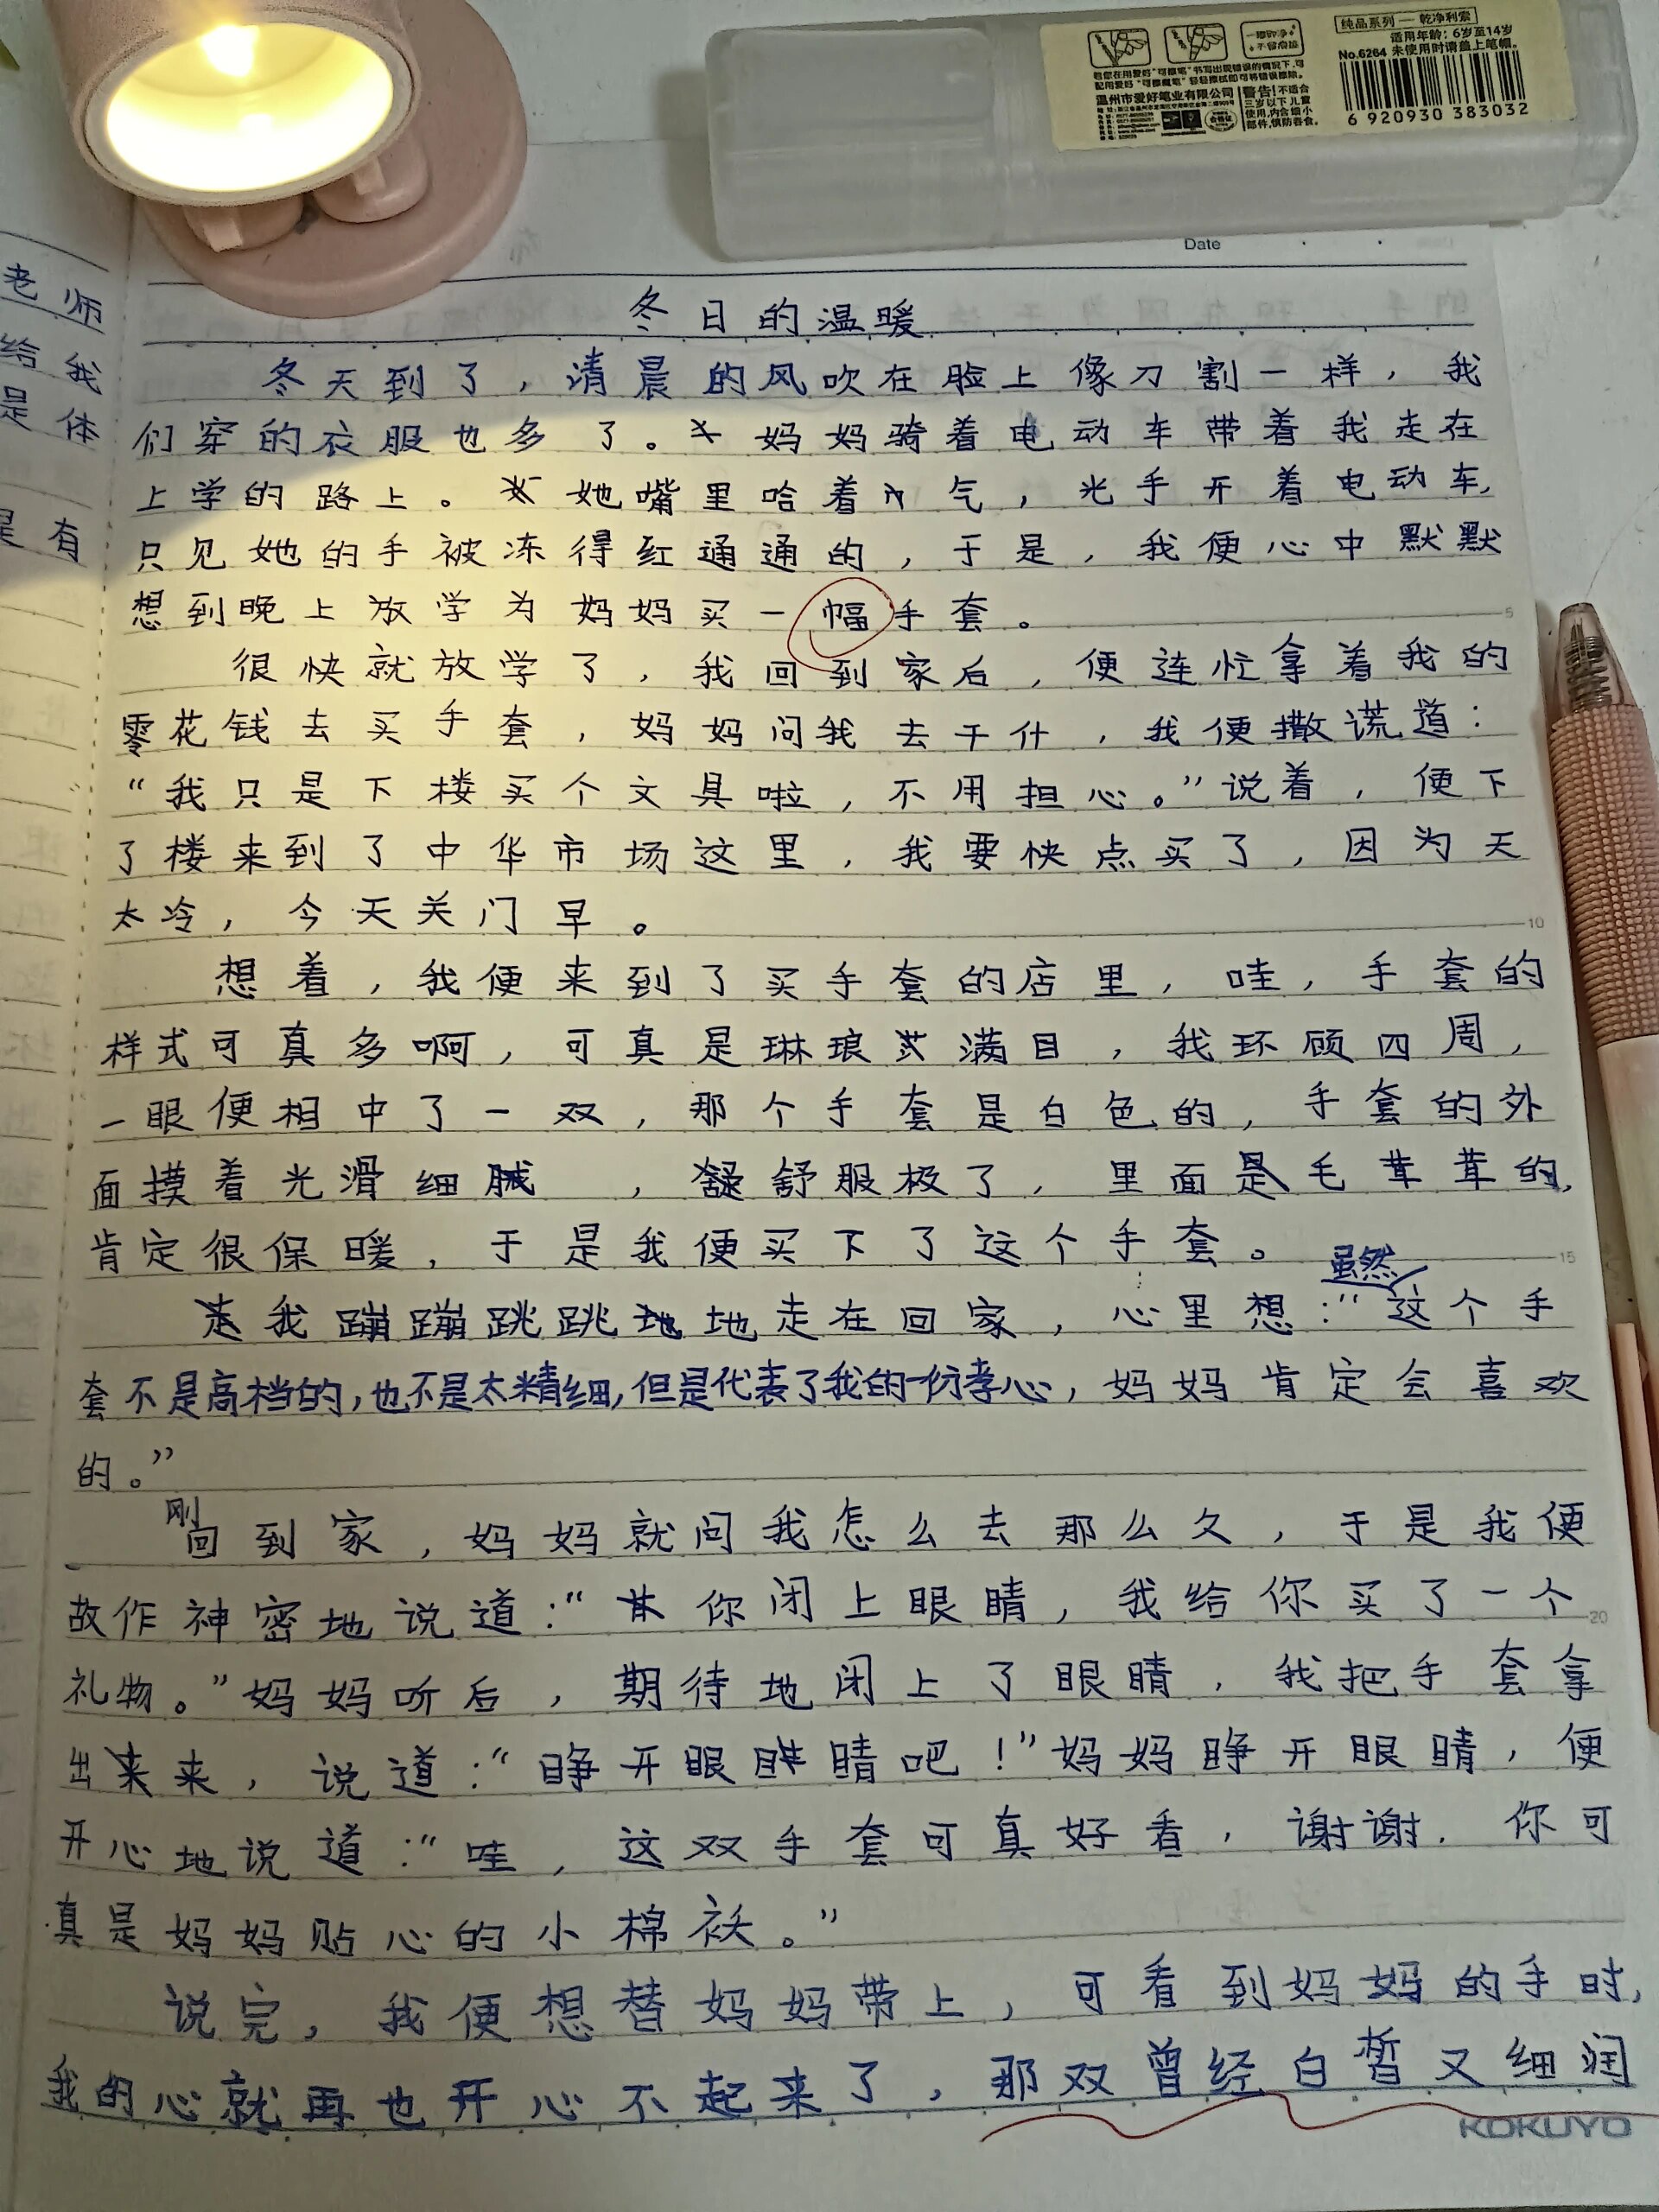 纯品系列 — 乾净利索
适用年龄：6岁至14岁
No.6264 未使用时请盖上笔帽。
温州市爱好笔业有限公司
警告！不适合
三岁以下儿童
使用，内含细小
部件，慎防吞食。
6 920930 383032
Date
老师
给我
是体
是有
冬日的温暖
冬天到了，清晨的风吹在脸上像刀割一样，我
们穿的衣服也多了。妈妈骑着电动车带着我走在
上学的路上。她嘴里哈着气，光手开着电动车，
只见她的手被冻得红通通的，于是，我便心中默默
想到晚上放学为妈妈买一幅手套。
5
很快就放学了，我回到家后，便连忙拿着我的
零花钱去买手套，妈妈问我去干什，我便撒谎道：
“我只是下楼买个文具啦，不用担心。”说着，便下
了楼来到了中华市场这里，我要快点买了，因为天
太冷，今天关门早。
10
想着，我便来到了买手套的店里，哇，手套的
样式可真多啊，可真是琳琅满目，我环顾四周，
一眼便相中了一双，那个手套是白色的，手套的外
面摸着光滑细腻，舒服极了，里面是毛茸茸的，
肯定很保暖，于是我便买下了这个手套。
15
我蹦蹦跳跳地走在回家，心里想：“虽然这个手
套不是高档的，也不是太精细，但是代表了我的一份孝心，妈妈肯定会喜欢
的。”
刚回到家，妈妈就问我怎么去那么久，于是我便
故作神密地说道：“你闭上眼睛，我给你买了一个
20
礼物。”妈妈听后，期待地闭上了眼睛，我把手套拿
出来，说道：“睁开眼睛吧！”妈妈睁开眼睛，便
开心地说道：“哇，这双手套可真好看，谢谢．你可
真是妈妈贴心的小棉袄。”
说完，我便想替妈妈带上，可看到妈妈的手时，
我的心就再也开心不起来了，那双曾经白皙又细润
KOKUYO